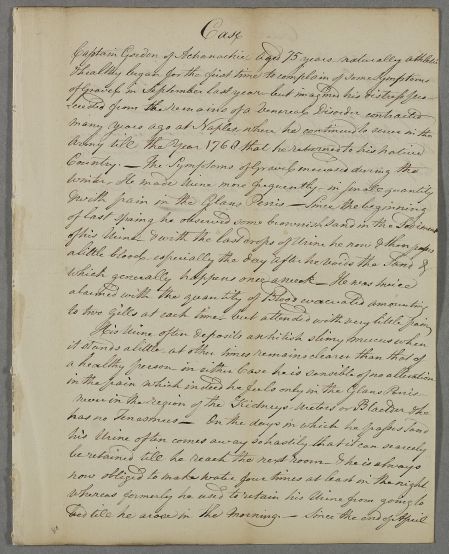 Case
Captain Gordon of Achanachie aged 75 years naturally athletic
& healthy began for the first time to complain of some Symptoms
of Gravel in September last year but imagined his distress pro-
ceeded from the remains of a Venereal Disorder contracted
many years ago at Naples where he continued to serve in the
Army till the Year 1768 that he returned to his native
Country. — The Symptoms of Gravel increased during the
Winter. He made Urine more frequently in small quantity
& with pain in the Glans Penis — Since the beginning
of last Spring he observed some brownish Sand in the Sediment
of his Urine & with the last drops of Urine he now & then passes
a little blood, especially the day after he voids the Sand &
which generally happens once a week — He was twice
alarmed with the quantity of Blood evacuated amounting
to two Gills at each time but attended with very little pain
His Urine often deposits a whitish slimy mucus when
it stands a little at other times remains clearer than that of
a healthy person in either Case he is sensible of no alteration
in the pain which indeed he feels only in the Glans Penis
never in the region of the Kidneys Ureters or Bladder. He
has no Tenasmus — On the days in which he passes Sand
his Urine often comes away so hastily that it can scarcely
be retained till he reach the next room — & he is always
now obliged to make water four times at least in the night
whereas formerly he used to retain his Urine from going to
bed till he arose in the morning. — Since the end of April